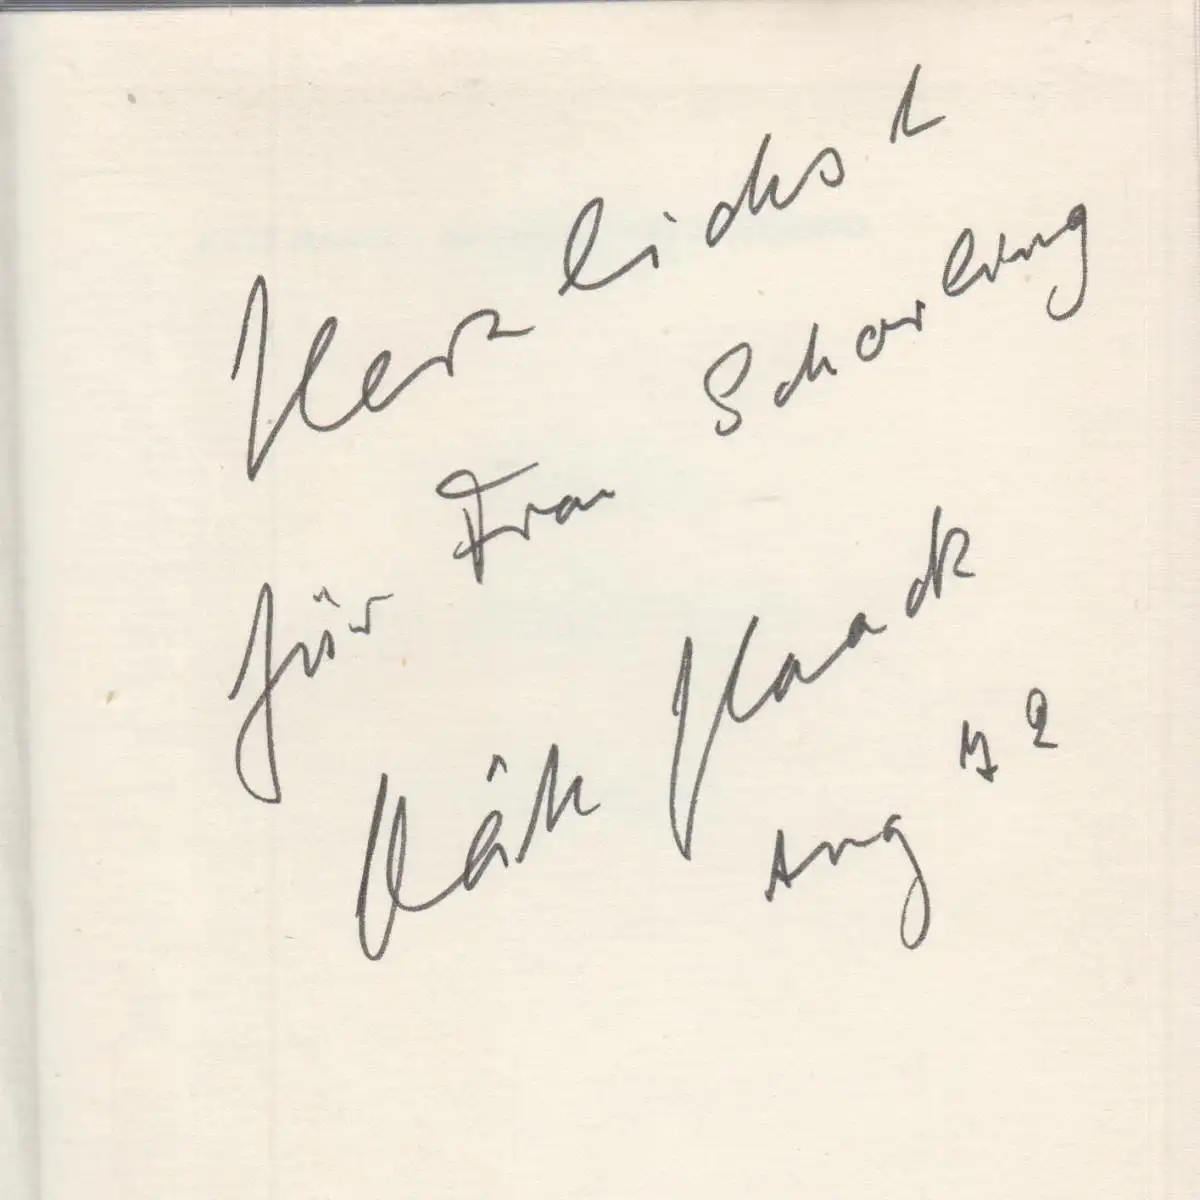 Herzlichst
für Frau Scharlung
Käte Haack
Aug 72